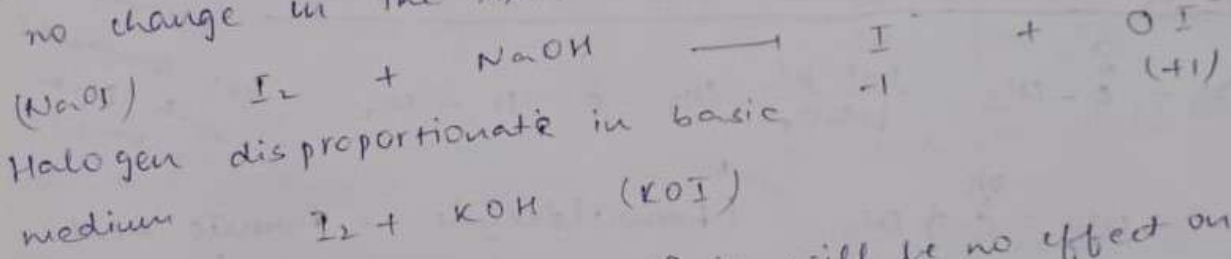 no change in the
(NaOI) I₂ + NaOH ⟶ I⁻ + OI⁻
-1 (+1)
Halogen disproportionate in basic
medium I₂ + KOH (KOI)
will be no effect on